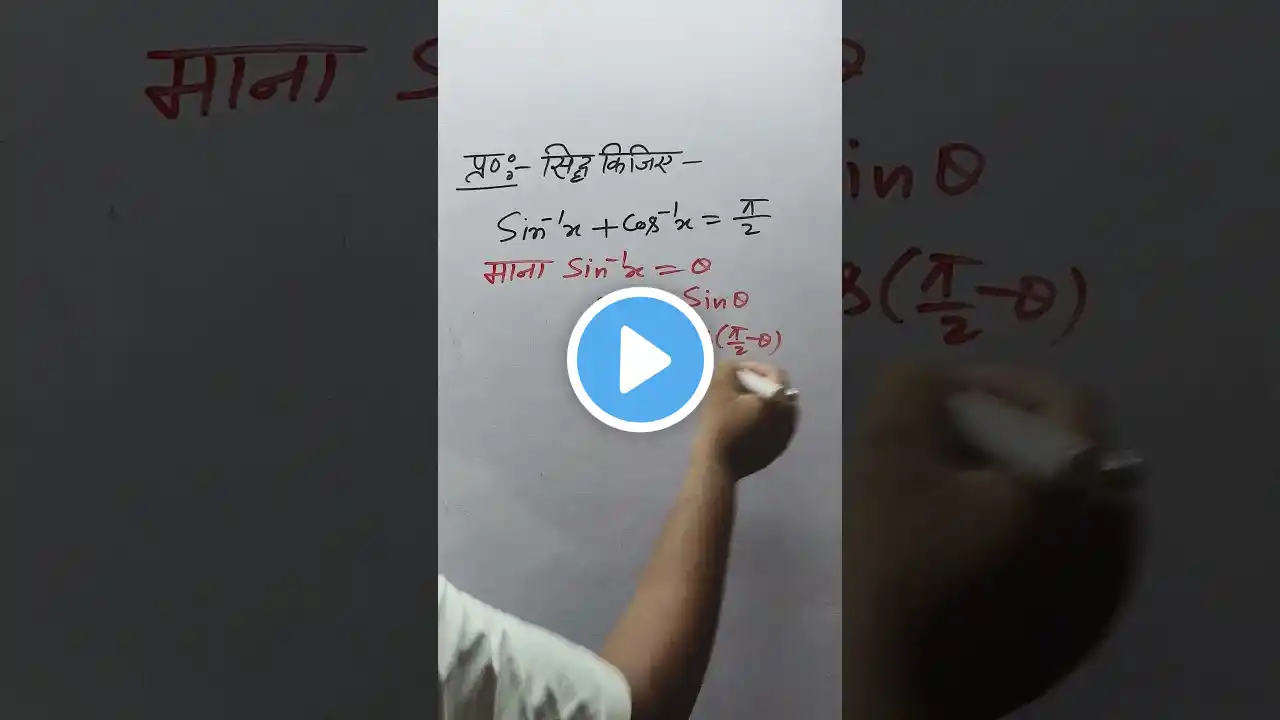 प्र०:- सिद्ध किजिए -
Sin⁻¹x + Cos⁻¹x = π/2
माना Sin⁻¹x = θ
Sinθ
(π/2 - θ)